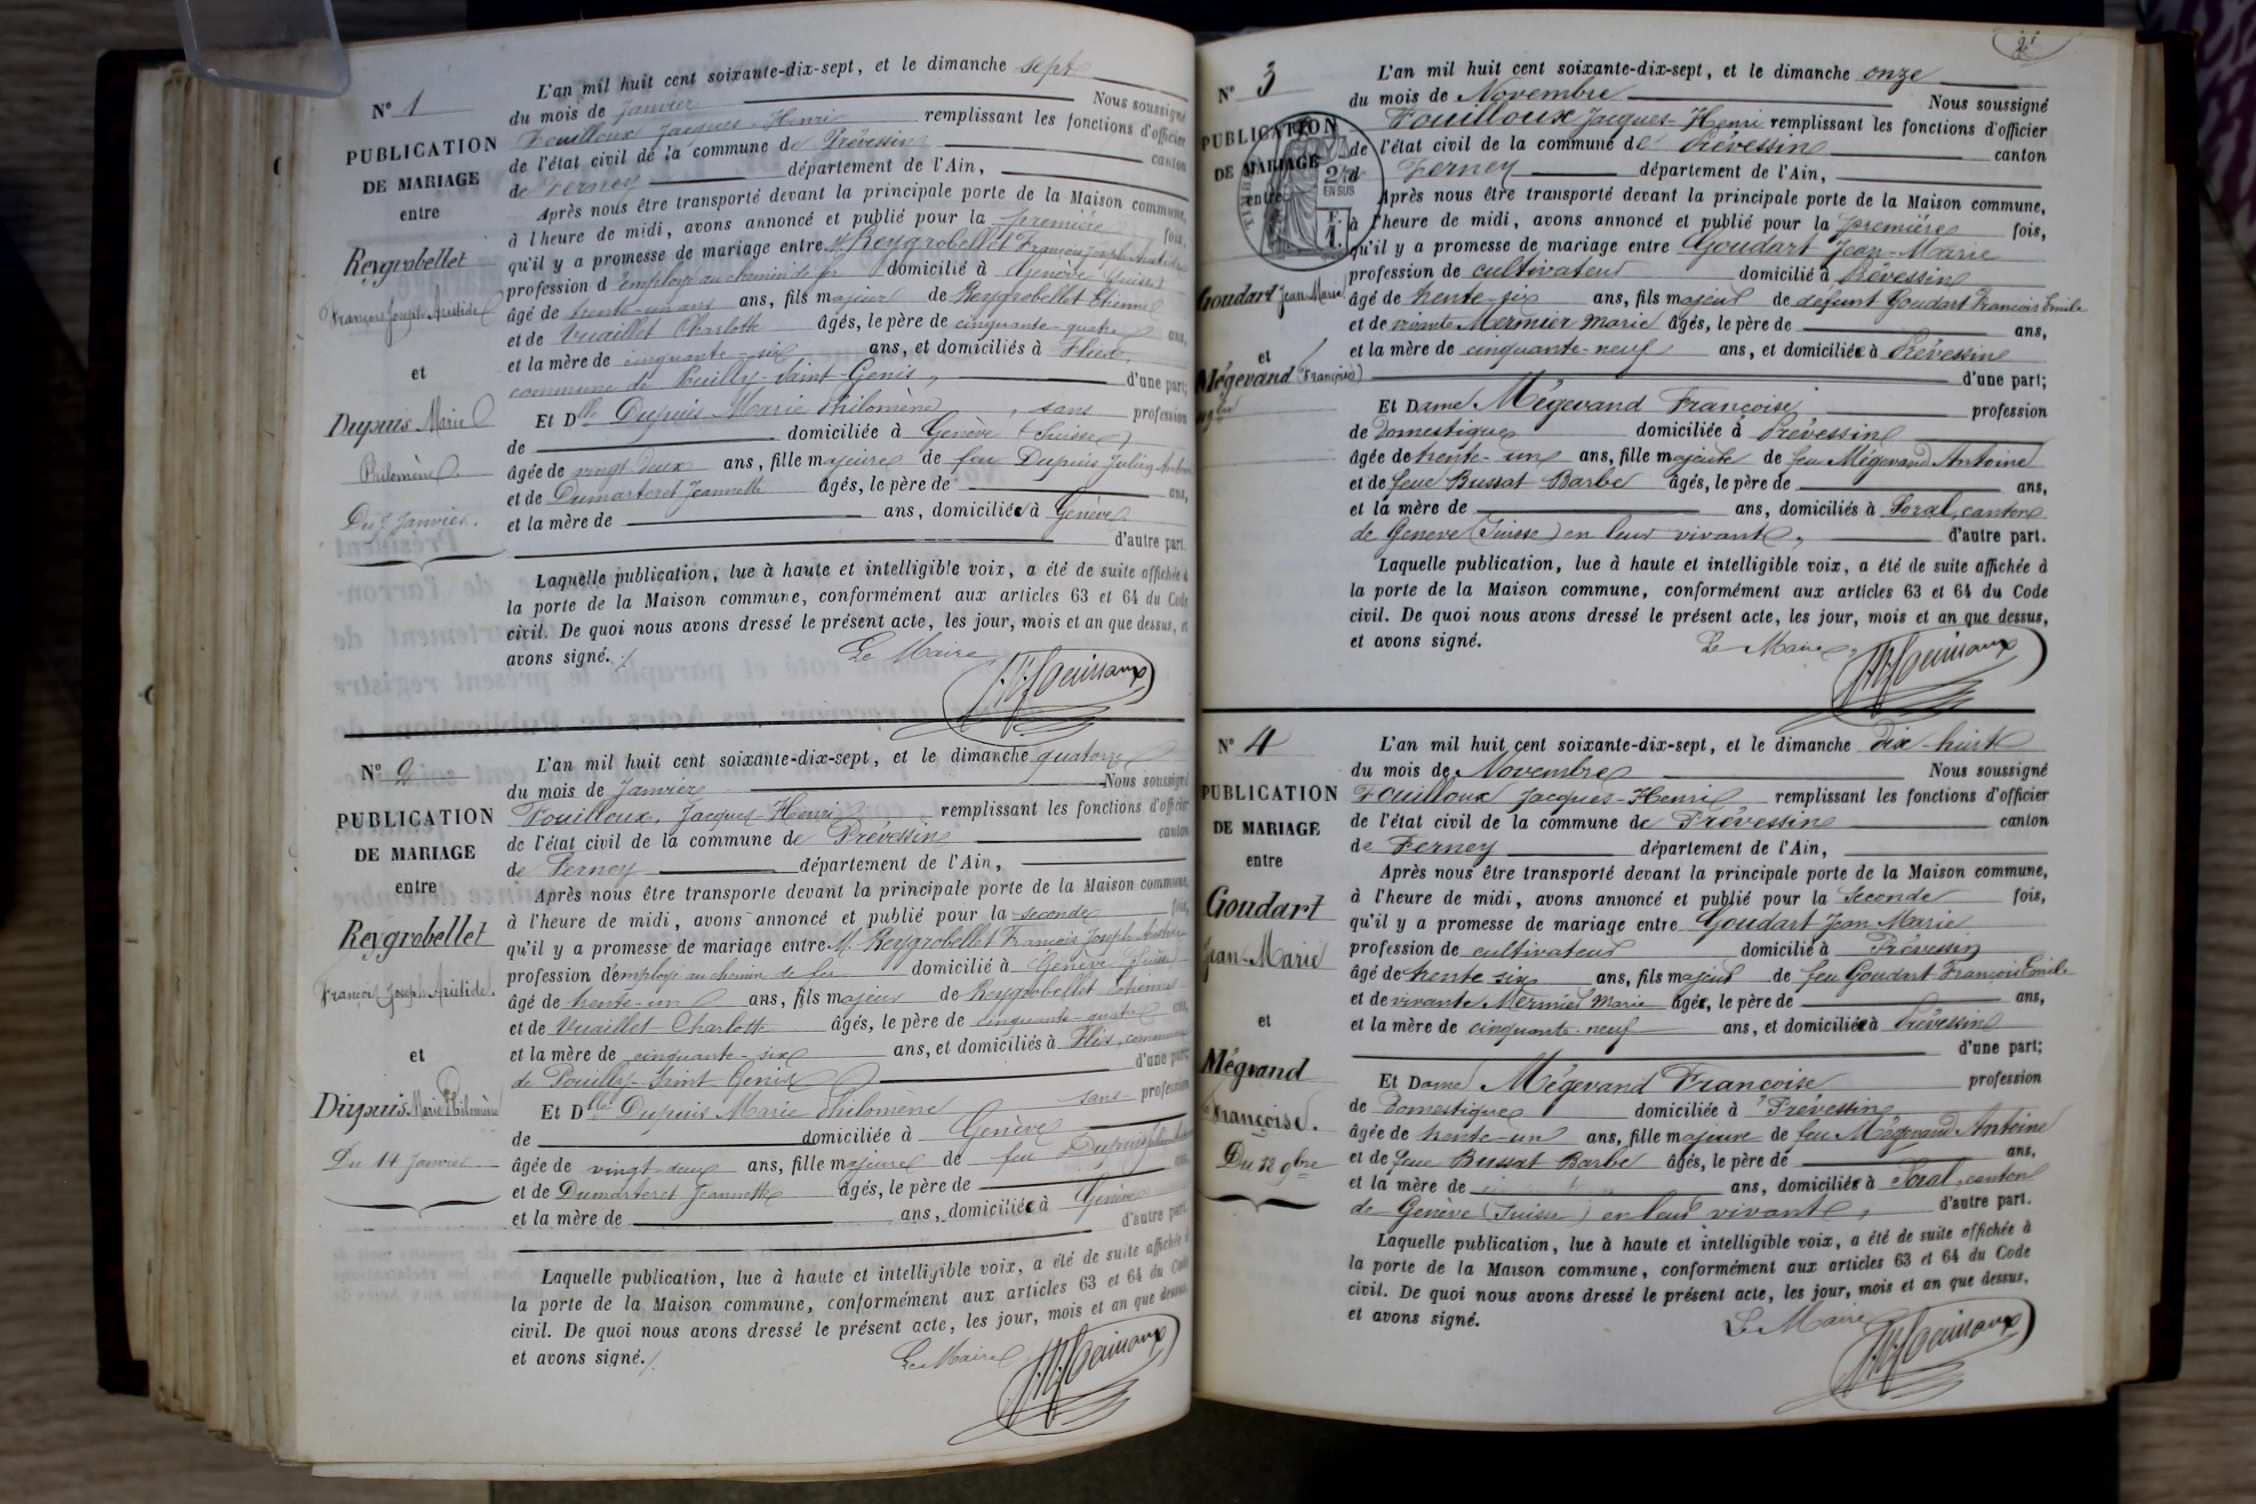 N° 1
PUBLICATION
DE MARIAGE
entre
Reygrobellet
François Joseph Aristide
et
Dupuis Marie
Philomène
Du 7 Janvier.
L'an mil huit cent soixante-dix-sept, et le dimanche sept
du mois de Janvier Nous soussigné
Fouilloux Jacques-Henri remplissant les fonctions d'officier
de l'état civil de la commune de Prévessin canton
de Ferney département de l'Ain,
Après nous être transporté devant la principale porte de la Maison commune,
à l'heure de midi, avons annoncé et publié pour la première fois,
qu'il y a promesse de mariage entre M. Reygrobellet François Joseph Aristide
profession d'employé au chemin de fer domicilié à Genève (Suisse)
âgé de trente-un ans ans, fils majeur de Reygrobellet Etienne
et de Vuaillet Charlotte âgés, le père de cinquante-quatre ans,
et la mère de cinquante-six ans, et domiciliés à
commune de Pouilly-Saint-Genis, d'une part;
Et Dlle Dupuis Marie Philomène, sans profession
de domiciliée à Genève (Suisse)
âgée de vingt-deux ans, fille majeure de feu Dupuis Julien
et de Dumarteret Jeannette âgés, le père de ans,
et la mère de ans, domiciliée à Genève
d'autre part.
Laquelle publication, lue à haute et intelligible voix, a été de suite affichée à
la porte de la Maison commune, conformément aux articles 63 et 64 du Code
civil. De quoi nous avons dressé le présent acte, les jour, mois et an que dessus, et
avons signé.
Le Maire
N° 2
PUBLICATION
DE MARIAGE
entre
Reygrobellet
François Joseph Aristide.
et
Dupuis Marie Philomène
Du 14 Janvier
L'an mil huit cent soixante-dix-sept, et le dimanche quatorze
du mois de Janvier Nous soussigné
Fouilloux, Jacques-Henri remplissant les fonctions d'officier
de l'état civil de la commune de Prévessin canton
de Ferney département de l'Ain,
Après nous être transporté devant la principale porte de la Maison commune,
à l'heure de midi, avons annoncé et publié pour la seconde fois,
qu'il y a promesse de mariage entre M. Reygrobellet François Joseph Aristide
profession d'employé au chemin de fer domicilié à Genève (Suisse)
âgé de trente-un ans, fils majeur de Reygrobellet Etienne
et de Vuaillet Charlotte âgés, le père de cinquante-quatre ans,
et la mère de cinquante-six ans, et domiciliés à Flies, commune
de Pouilly-Saint-Genis d'une part;
Et Dlle Dupuis Marie Philomène sans profession
de domiciliée à Genève
âgée de vingt-deux ans, fille majeure de feu Dupuis
et de Dumarteret Jeannette âgés, le père de ans,
et la mère de ans, domiciliée à Genève
d'autre part.
Laquelle publication, lue à haute et intelligible voix, a été de suite affichée à
la porte de la Maison commune, conformément aux articles 63 et 64 du Code
civil. De quoi nous avons dressé le présent acte, les jour, mois et an que dessus,
et avons signé.
Le Maire
N° 3
PUBLICATION
DE MARIAGE
entre
Goudart Jean-Marie
et
Mégevand (Françoise)
2/10
EN SUS
L'an mil huit cent soixante-dix-sept, et le dimanche onze
du mois de Novembre Nous soussigné
Fouilloux Jacques-Henri remplissant les fonctions d'officier
de l'état civil de la commune de Prévessin canton
de Ferney département de l'Ain,
Après nous être transporté devant la principale porte de la Maison commune,
à l'heure de midi, avons annoncé et publié pour la première fois,
qu'il y a promesse de mariage entre Goudart Jean-Marie
profession de cultivateur domicilié à Prévessin
âgé de trente-six ans, fils majeur de défunt Goudart François Emile
et de vivante Mermier Marie âgés, le père de ans,
et la mère de cinquante-neuf ans, et domiciliée à Prévessin
d'une part;
Et Dame Mégevand Françoise profession
de Domestique domiciliée à Prévessin
âgée de trente-un ans, fille majeure de feu Mégevand Antoine
et de feue Bussat Barbe âgés, le père de ans,
et la mère de ans, domiciliés à Soral, canton
de Genève (Suisse) en leur vivant, d'autre part.
Laquelle publication, lue à haute et intelligible voix, a été de suite affichée à
la porte de la Maison commune, conformément aux articles 63 et 64 du Code
civil. De quoi nous avons dressé le présent acte, les jour, mois et an que dessus,
et avons signé.
Le Maire,
N° 4
PUBLICATION
DE MARIAGE
entre
Goudart
Jean-Marie
et
Mégvand
Françoise.
L'an mil huit cent soixante-dix-sept, et le dimanche dix-huit
du mois de Novembre Nous soussigné
Fouilloux Jacques-Henri remplissant les fonctions d'officier
de l'état civil de la commune de Prévessin canton
de Ferney département de l'Ain,
Après nous être transporté devant la principale porte de la Maison commune,
à l'heure de midi, avons annoncé et publié pour la Seconde fois,
qu'il y a promesse de mariage entre Goudart Jean Marie
profession de cultivateur domicilié à Prévessin
âgé de trente six ans, fils majeur de feu Goudart François Emile
et de vivante Mermier Marie âgés, le père de ans,
et la mère de cinquante-neuf ans, et domiciliée à Prévessin
d'une part;
Et Dame Mégevand Françoise profession
de Domestique domiciliée à Prévessin
âgée de trente-un ans, fille majeure de feu Mégevand Antoine
et de feue Bussat Barbe âgés, le père de ans,
et la mère de ans, domiciliés à Soral, canton
de Genève (Suisse) en leur vivant, d'autre part.
Laquelle publication, lue à haute et intelligible voix, a été de suite affichée à
la porte de la Maison commune, conformément aux articles 63 et 64 du Code
civil. De quoi nous avons dressé le présent acte, les jour, mois et an que dessus,
et avons signé.
Le Maire